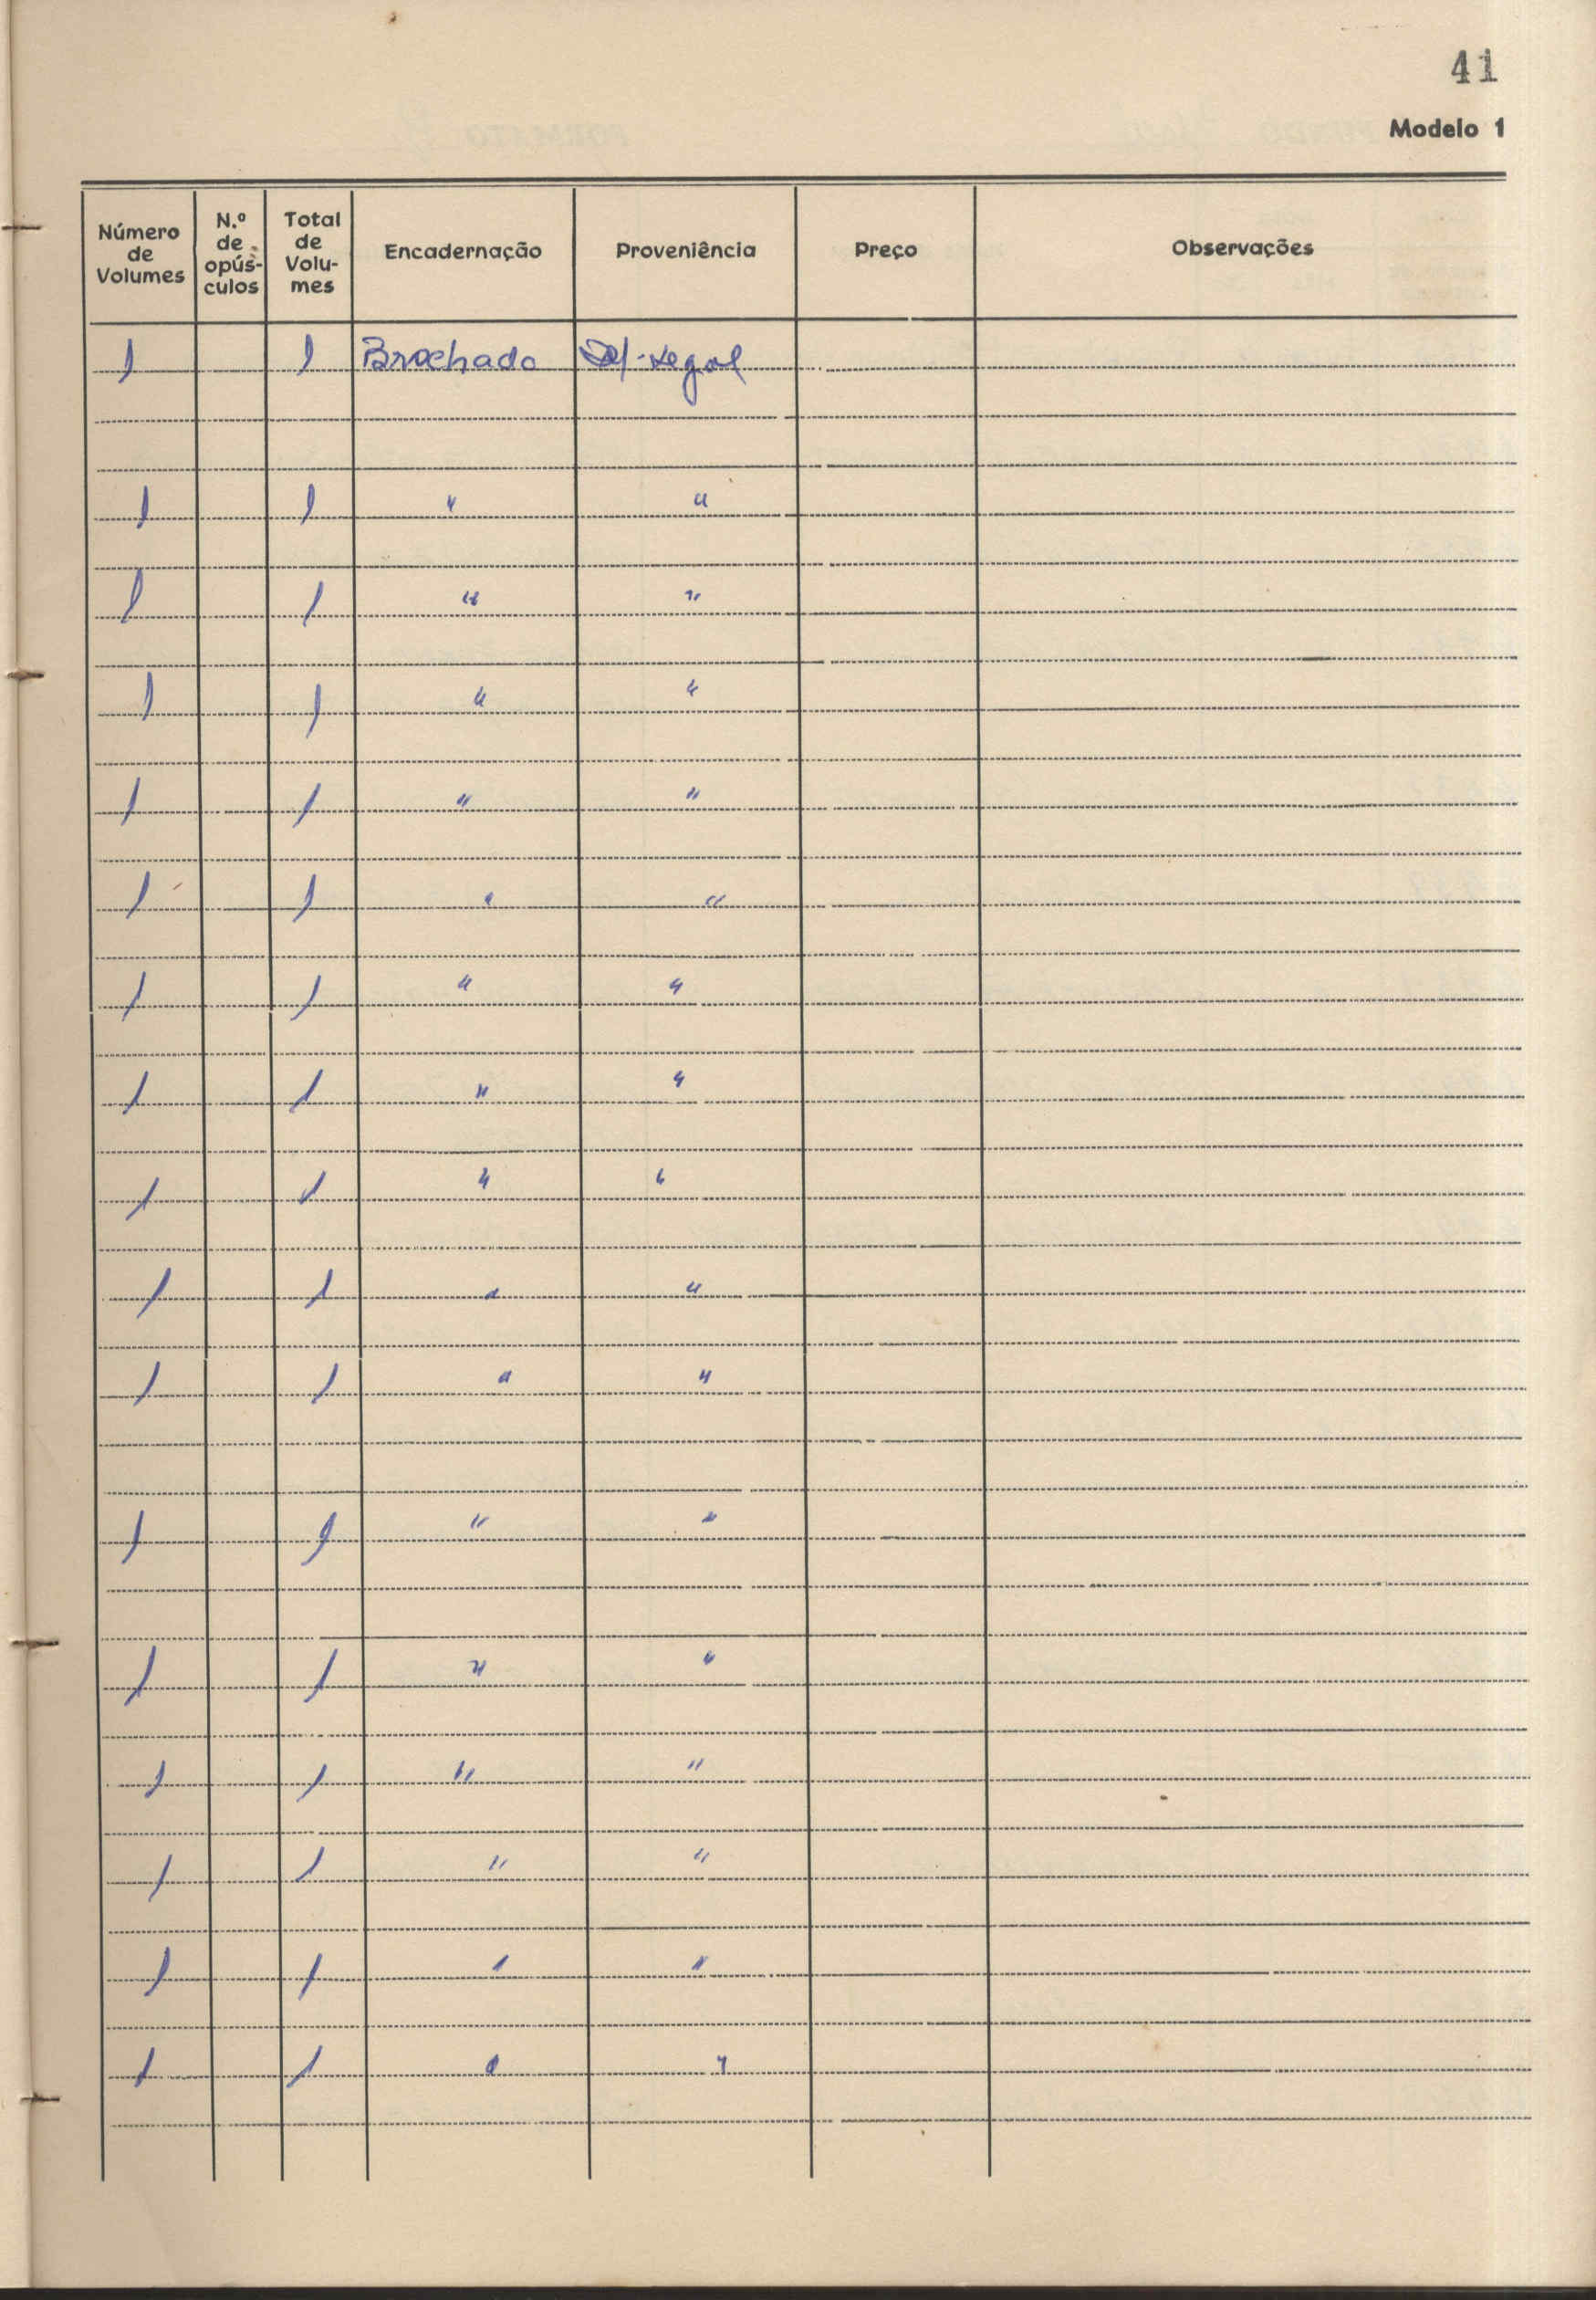 41
Modelo 1
Número de Volumes | N.º de opús-culos | Total de Volu-mes | Encadernação | Proveniência | Preço | Observações
1 | | 1 | Brochado | Legal
1 | | 1 | " | "
1 | | 1 | " | "
1 | | 1 | " | "
1 | | 1 | " | "
1 | | 1 | " | "
1 | | 1 | " | "
1 | | 1 | " | "
1 | | 1 | " | "
1 | | 1 | " | "
1 | | 1 | " | "
1 | | 1 | " | "
1 | | 1 | " | "
1 | | 1 | " | "
1 | | 1 | " | "
1 | | 1 | " | "
1 | | 1 | " | "